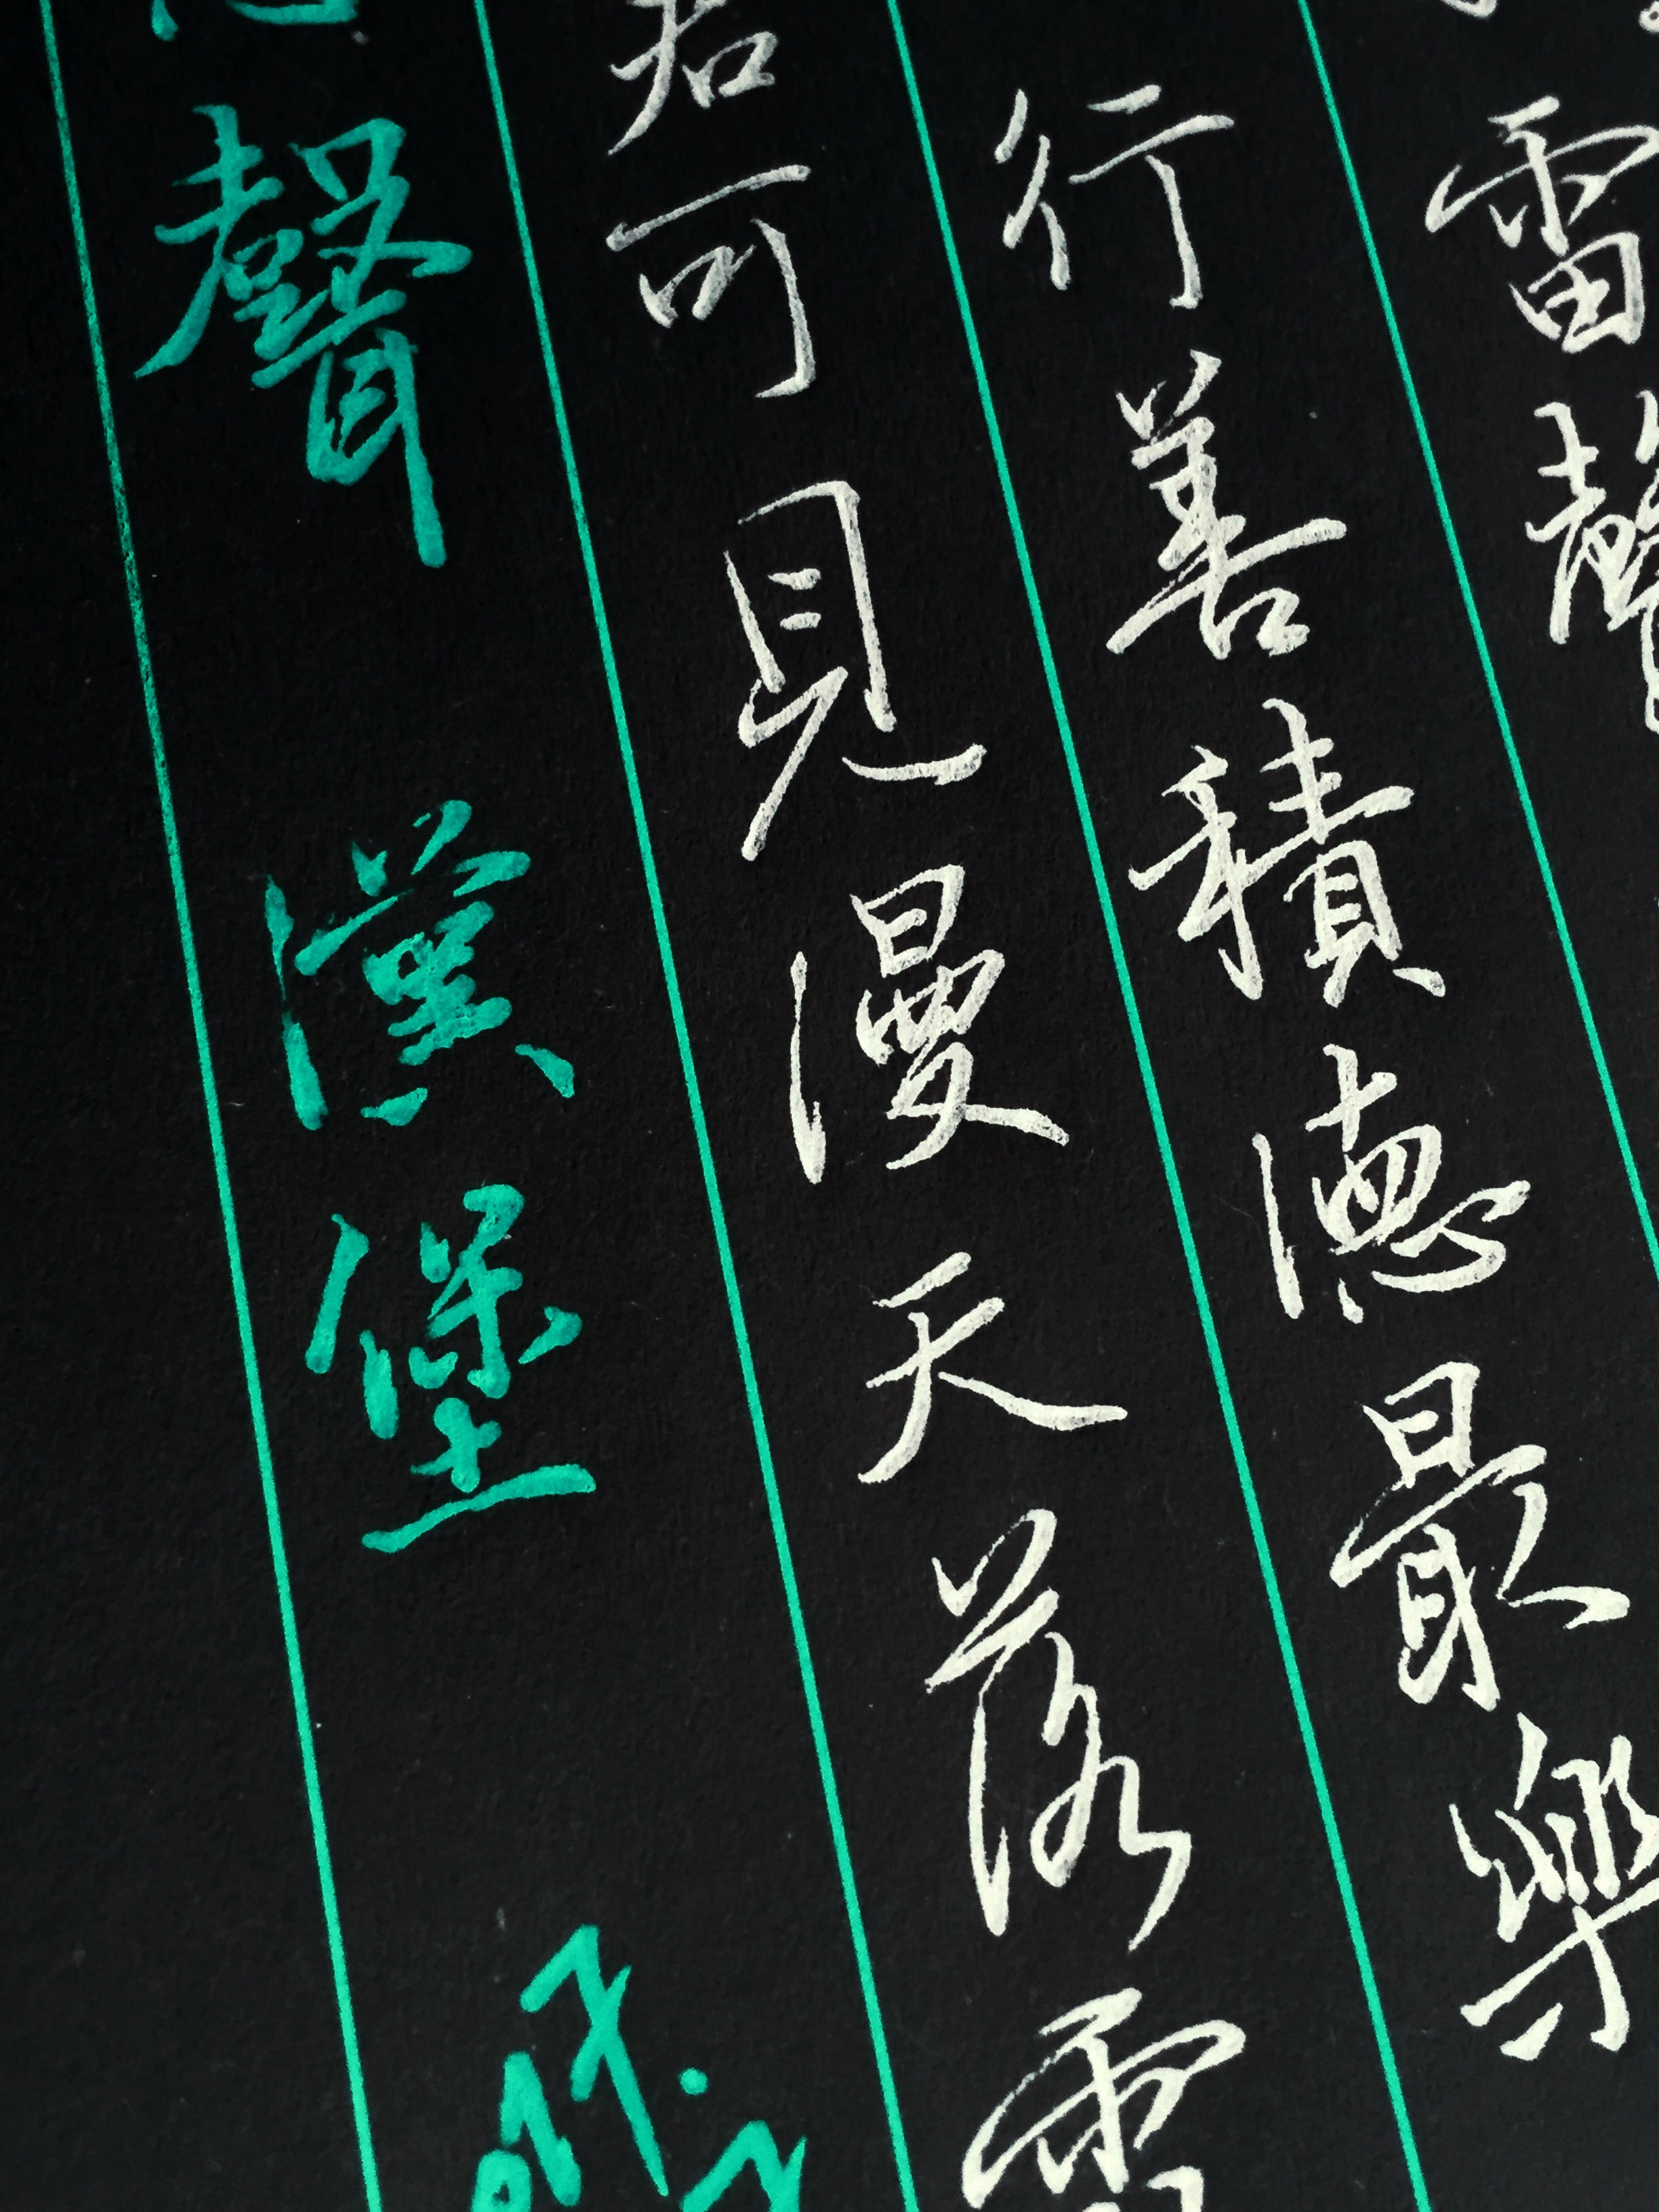 雷聲
行善積德最樂
若可見漫天落
聲 漢堡